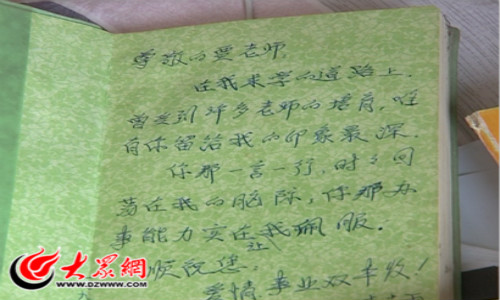 尊敬的贾老师,
在我求学的道路上,
曾受到许多老师的培育,唯
有你留给我的印象最深.
你那一言一行,时时回
荡在我的脑际,你那办
事能力实在让我佩服.
顺祝您:
爱情、事业双丰收!
大眾網
WWW.DZWWW.COM